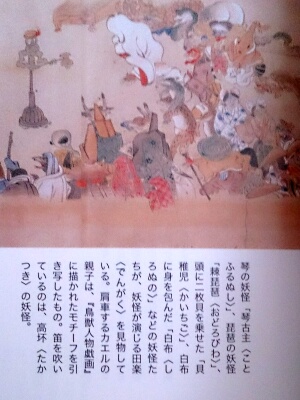 琴の妖怪「琴古主〈こと
ふるぬし〉」、琵琶の妖怪
「棘琵琶〈おどろびわ〉」、
頭に二枚貝を乗せた「貝
稚児〈かいちご〉」、白布
に身を包んだ「白布〈し
ろぬの〉」などの妖怪た
ちが、妖怪が演じる田楽
〈でんがく〉を見物して
いる。肩車するカエルの
親子は、『鳥獣人物戯画』
に描かれたモチーフを引
き写したもの。笛を吹い
ているのは、高坏〈たか
つき〉の妖怪。